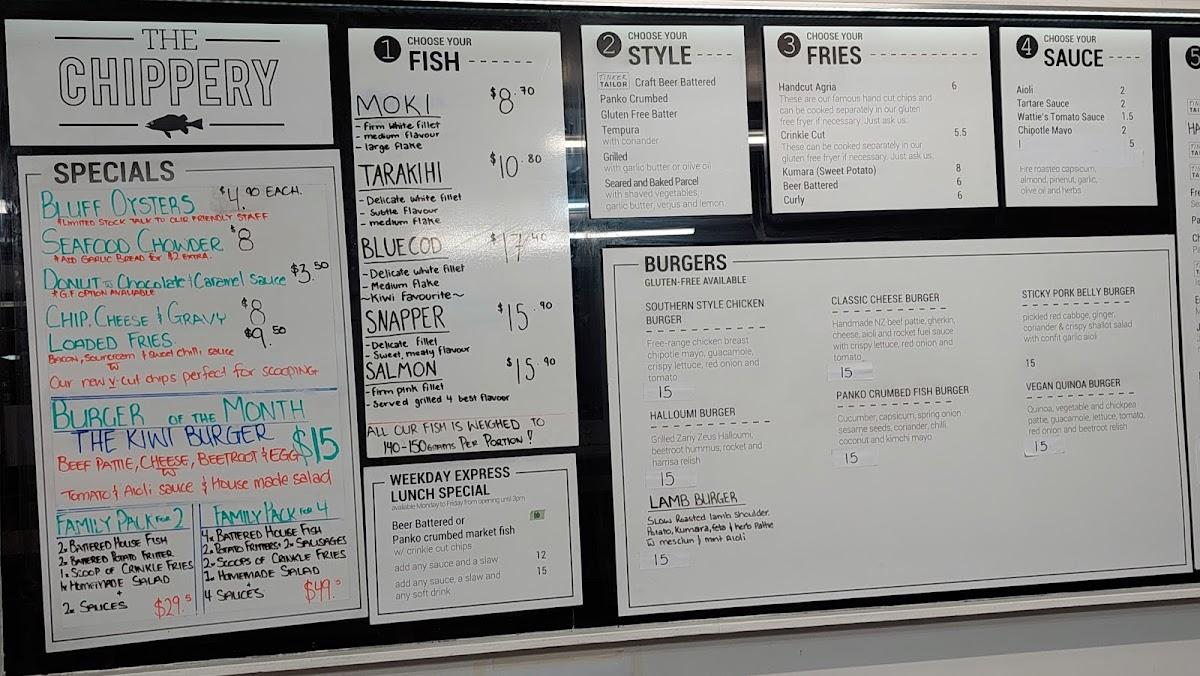 THE
CHIPPERY
SPECIALS
BLUFF OYSTERS $4.90 EACH.
*LIMITED STOCK TALK TO OUR FRIENDLY STAFF
SEAFOOD CHOWDER $8
*ADD GARLIC BREAD for $2 EXTRA.
DONUT w Chocolate & Caramel Sauce $3.50
*G.F OPTION AVAILABLE
CHIP, CHEESE & GRAVY $8
LOADED FRIES $9.50
BACON, Sourcream & Sweet chilli sauce
Our new v-cut chips perfect for scooping
BURGER OF THE MONTH
THE KIWI BURGER $15
BEEF PATTIE, CHEESE, BEETROOT & EGG
w
Tomato & Aioli sauce & House made salad
FAMILY PACK FOR 2
2x BATTERED HOUSE FISH
2x BATTERED POTATO FRITTER
1x SCOOP OF CRINKLE FRIES
1x HOMEMADE SALAD
+
2x SAUCES $29.5
FAMILY PACK FOR 4
4x BATTERED HOUSE FISH
2x POTATO FRITTERS & 2x SAUSAGES
2x SCOOPS OF CRINKLE FRIES
1x HOMEMADE SALAD
+
4 SAUCES $49.0
1 CHOOSE YOUR
FISH
MOKI $8.70
- firm white fillet
- medium flavour
- large flake
TARAKIHI $10.80
- Delicate white fillet
- Subtle flavour
- medium flake
BLUECOD $17.40
- Delicate white fillet
- Medium flake
~Kiwi Favourite~
SNAPPER $15.90
- Delicate fillet
- Sweet, meaty flavour
SALMON $15.90
- Firm pink fillet
- Served grilled 4 best flavour
ALL OUR FISH IS WEIGHED TO
140-150grams PER PORTION!
WEEKDAY EXPRESS
LUNCH SPECIAL
available Monday to Friday from opening until 3pm
Beer Battered or 10
Panko crumbed market fish
w/ crinkle cut chips
add any sauce and a slaw 12
add any sauce, a slaw and 15
any soft drink
2 CHOOSE YOUR
STYLE
TINKER TAILOR Craft Beer Battered
Panko Crumbed
Gluten Free Batter
Tempura
with coriander
Grilled
with garlic butter or olive oil
Seared and Baked Parcel
with shaved vegetables,
garlic butter, verjus and lemon
3 CHOOSE YOUR
FRIES
Handcut Agria 6
These are our famous hand cut chips and
can be cooked separately in our gluten
free fryer if necessary. Just ask us.
Crinkle Cut 5.5
These can be cooked separately in our
gluten free fryer if necessary. Just ask us.
Kumara (Sweet Potato) 8
Beer Battered 6
Curly 6
4 CHOOSE YOUR
SAUCE
Aioli 2
Tartare Sauce 2
Wattie's Tomato Sauce 1.5
Chipotle Mayo 2
5
Fire roasted capsicum,
almond, pinenut, garlic,
olive oil and herbs
5
BURGERS
GLUTEN-FREE AVAILABLE
SOUTHERN STYLE CHICKEN
BURGER
Free-range chicken breast
chipotle mayo, guacamole,
crispy lettuce, red onion and
tomato
15
HALLOUMI BURGER
Grilled Zany Zeus Halloumi,
beetroot hummus, rocket and
harrisa relish
15
LAMB BURGER
Slow Roasted lamb shoulder.
Potato, Kumara, feta & herb Pattie
w mesclun & mint Aioli
15
CLASSIC CHEESE BURGER
Handmade NZ beef pattie, gherkin,
cheese, aioli and rocket fuel sauce
with crispy lettuce, red onion and
tomato
15
PANKO CRUMBED FISH BURGER
Cucumber, capsicum, spring onion
sesame seeds, coriander, chilli,
coconut and kimchi mayo
15
STICKY PORK BELLY BURGER
pickled red cabbge, ginger,
coriander & crispy shallot salad
with confit garlic aioli
15
VEGAN QUINOA BURGER
Quinoa, vegetable and chickpea
pattie, guacamole, lettuce, tomato,
red onion and beetroot relish
15